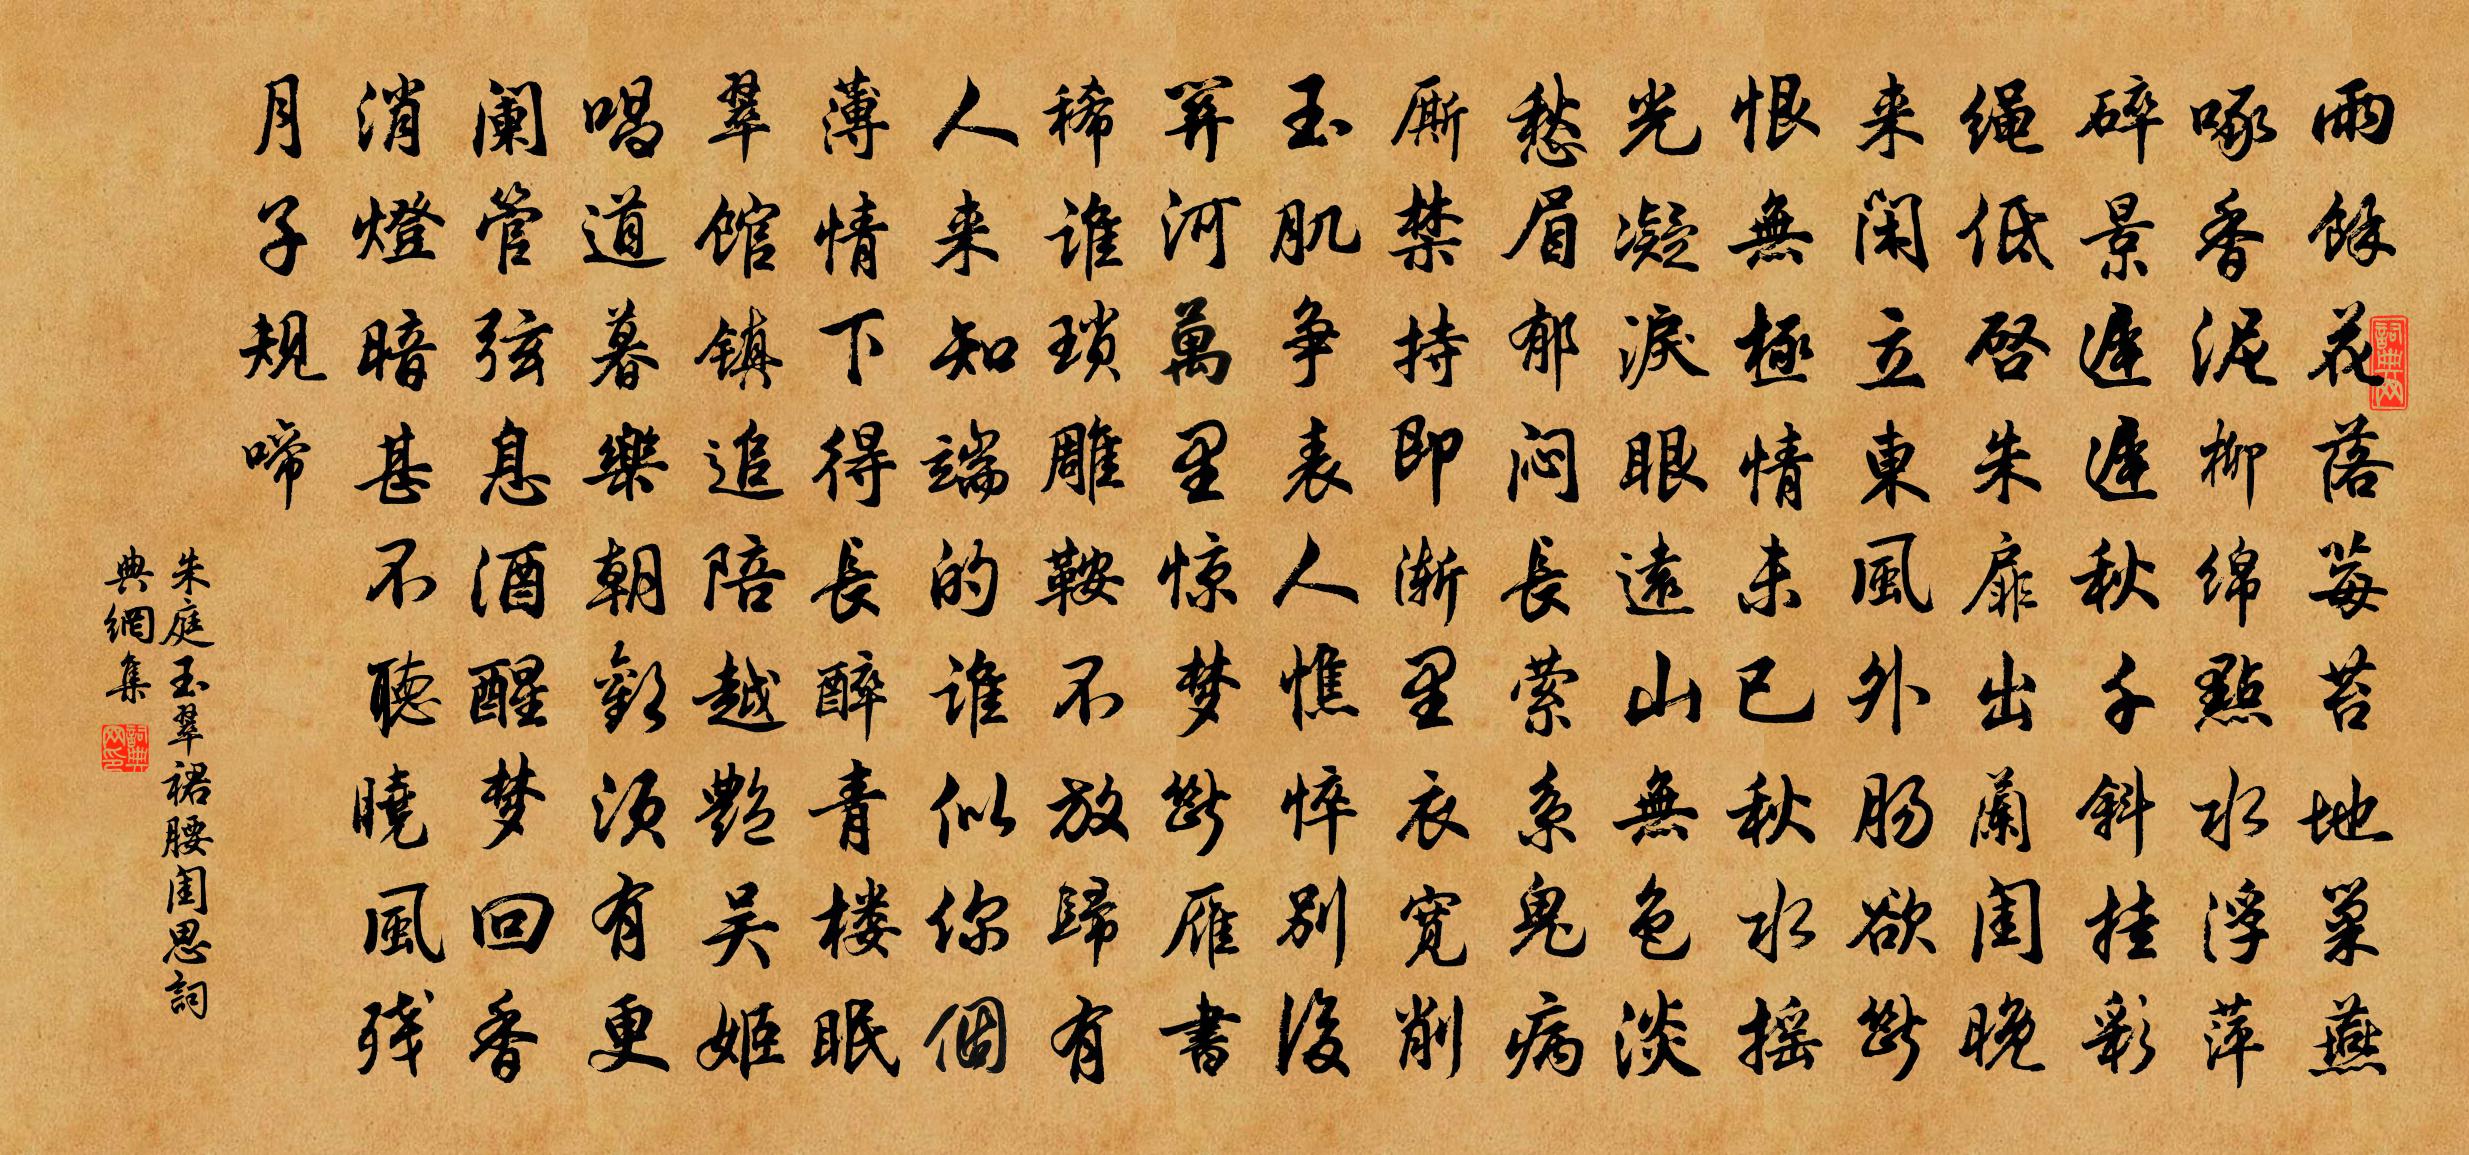 雨餘花落莓苔地巢燕
啄香泥柳绵點水浮萍
碎景遲遲秋千斜挂彩
绳低啓朱扉出蘭閨晚
来闲立東風外肠欲斷
恨無極情未已秋水摇
光凝淚眼遠山無色淡
愁眉郁闷長萦系鬼病
厮禁持即渐里衣寬削
玉肌争表人憔悴别後
關河萬里惊梦斷雁書
稀谁琐雕鞍不放歸有
人来知端的谁似你個
薄情下得長醉青楼眠
翠馆镇追陪越艷吴姬
唱道暮樂朝歡须有更
阑管弦息酒醒梦回香
消燈暗甚不聽曉風残
月子規啼
朱庭玉翠裙腰閨思詞
典網集
詞典网
詞典网印